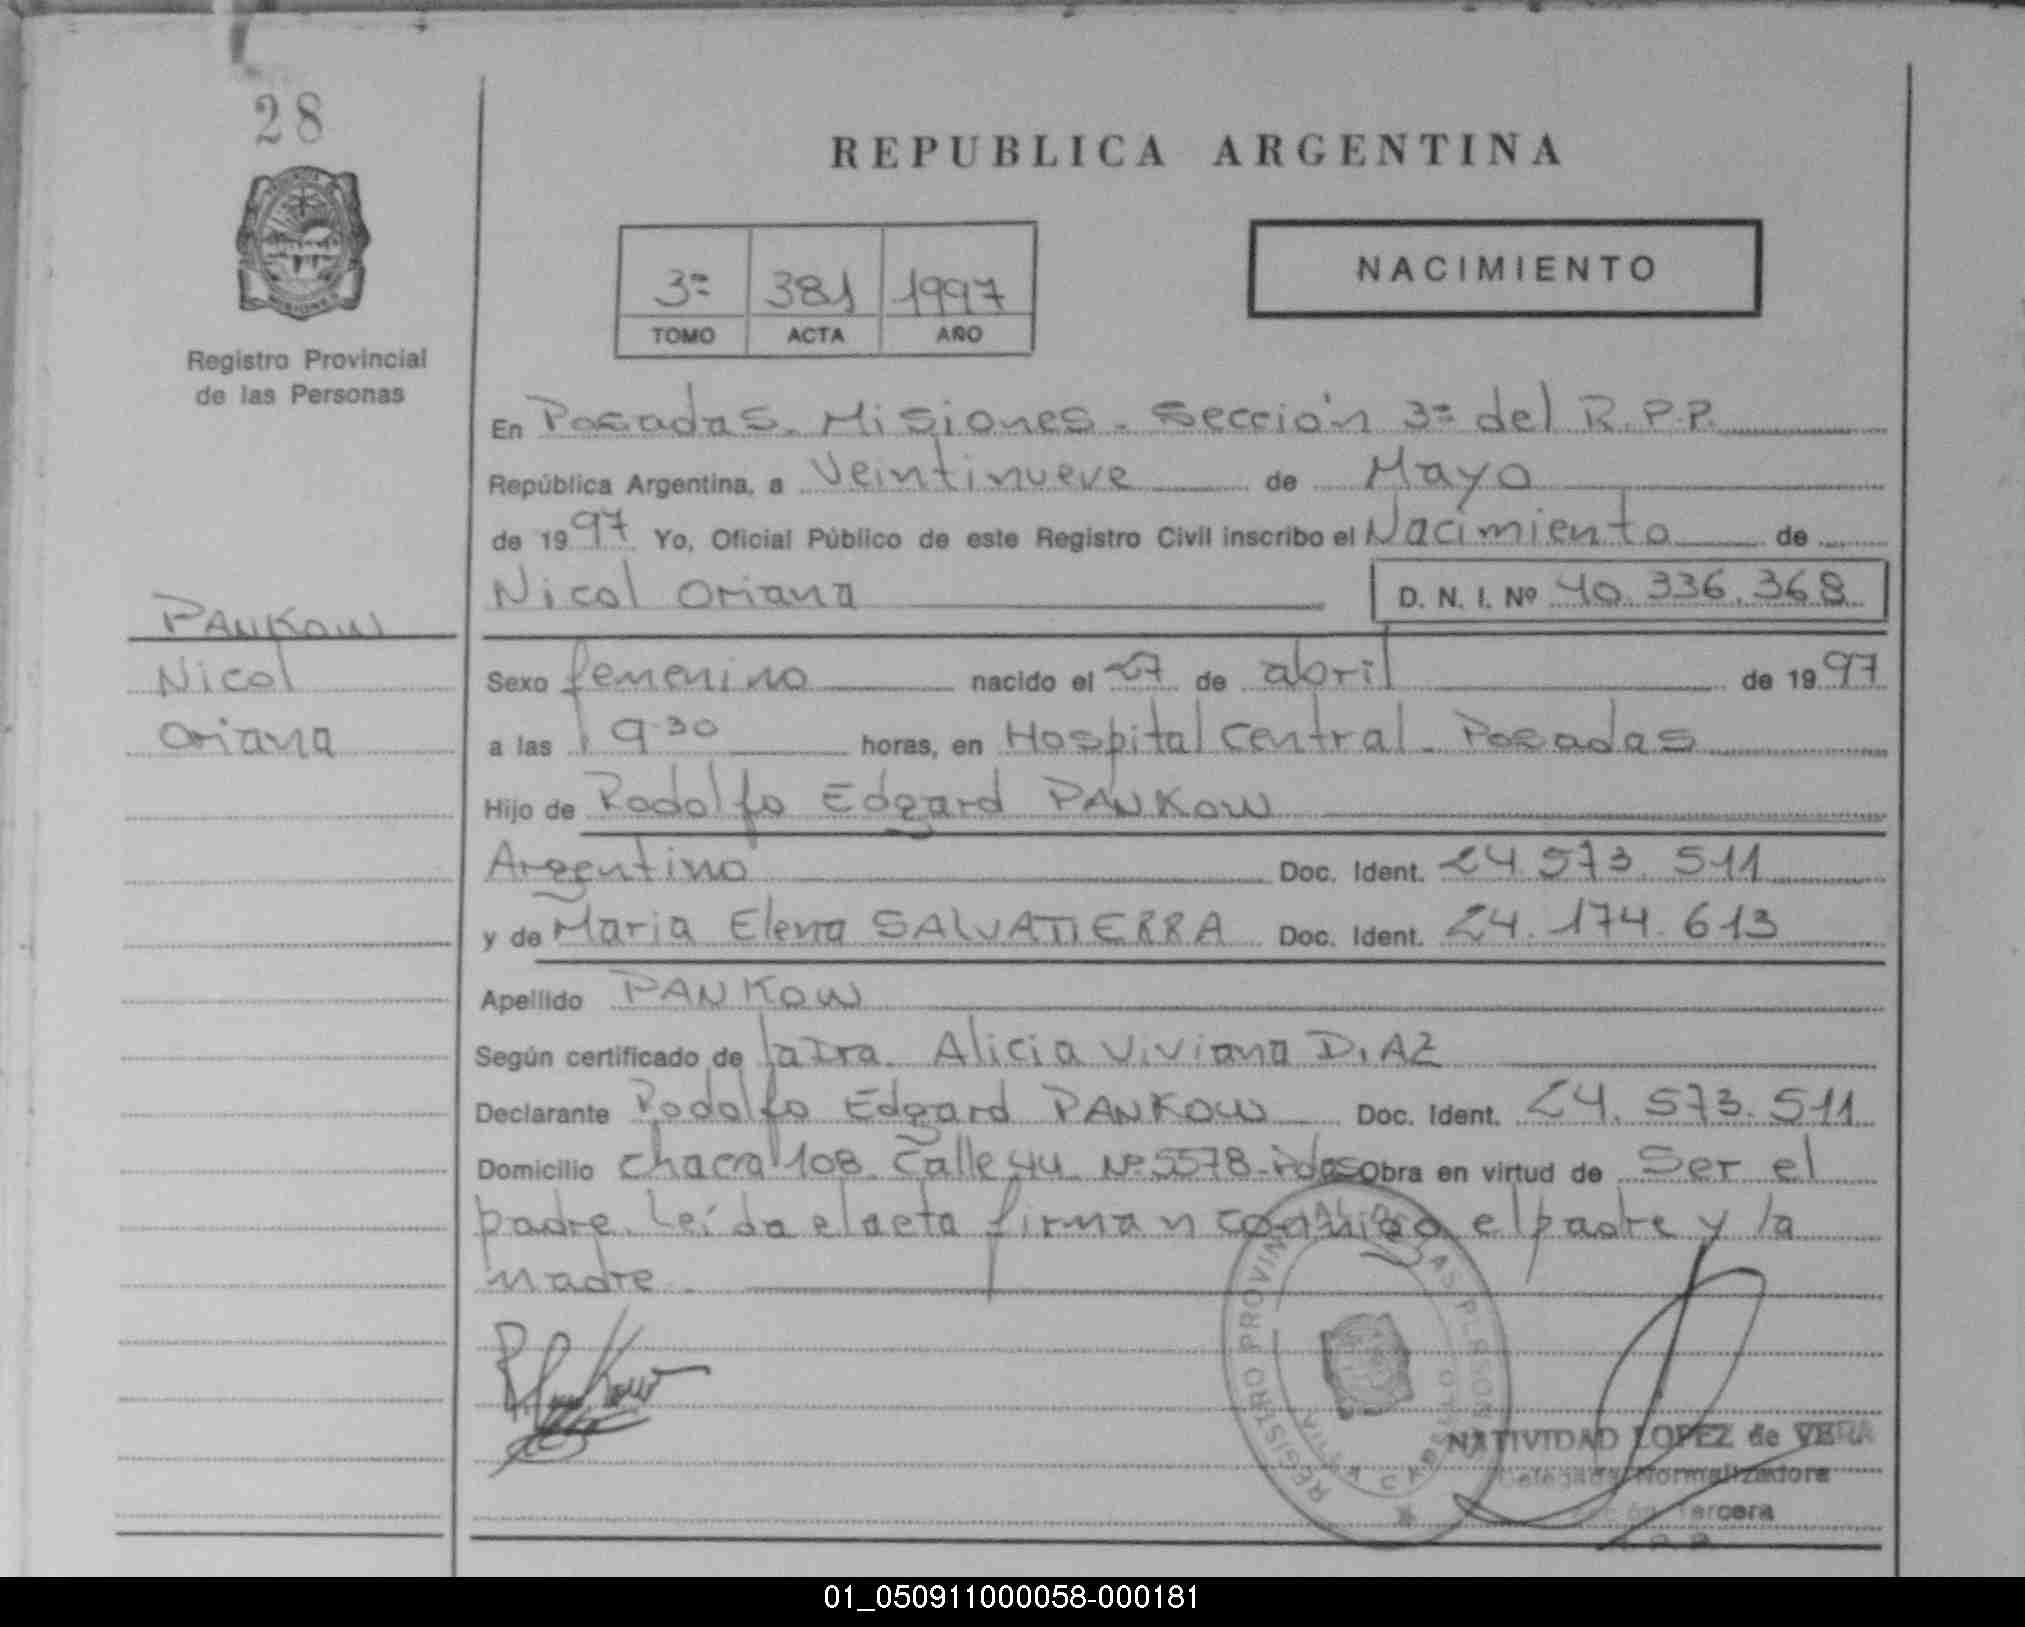 28
REPUBLICA ARGENTINA
3ª 381 1997
TOMO ACTA AÑO
NACIMIENTO
Registro Provincial
de las Personas
En Posadas. Misiones. Sección 3ª del R.P.P.
República Argentina, a Veintinueve de Mayo
de 1997 Yo, Oficial Público de este Registro Civil inscribo el Nacimiento de
Nicol Oriana D. N. I. Nº 40.336.368
PANKOW
Nicol
Oriana
Sexo femenino nacido el 27 de abril de 1997
a las 9.30 horas, en Hospital Central. Posadas
Hijo de Rodolfo Edgard PANKOW
Argentino Doc. Ident. 24.573.511
y de Maria Elena SALVATIERRA Doc. Ident. 24.174.613
Apellido PANKOW
Según certificado de la Dra. Alicia Viviana DIAZ
Declarante Rodolfo Edgard PANKOW Doc. Ident. 24.573.511
Domicilio Chacra 108 Calle 44 Nº 5578-Pdas Obra en virtud de Ser el
padre. Leída el acta firman conmigo el padre y la
madre
REGISTRO PROVINCIAL DE LAS PERSONAS
NATIVIDAD LOPEZ de VERA
Delegada Normalizadora
Sección Tercera
01_050911000058-000181